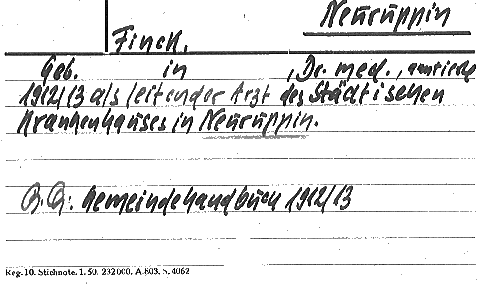 Neuruppin
Finck,
Geb. in , Dr. med.,
1912/13 als leitender Arzt des Städtischen
Krankenhauses in Neuruppin.
Gemeindehandbuch 1912/13
Reg. 10. Stichnote. 1. 50. 232000. A. 803. S. 4062